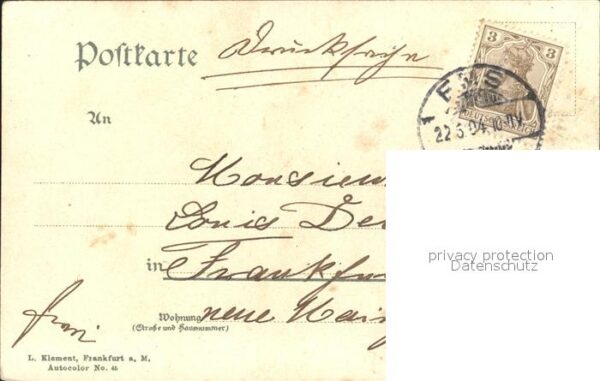 Postkarte Drucksache
3 3
DEUTSCHES REICH
EMS
22.5.04. 10-11V
An
Monsieur
Louis De
in Frankfur
Wohnung neue Main
(Straße und Hausnummer)
frei
L. Klement, Frankfurt a. M.
Autocolor No. 45
privacy protection
Datenschutz